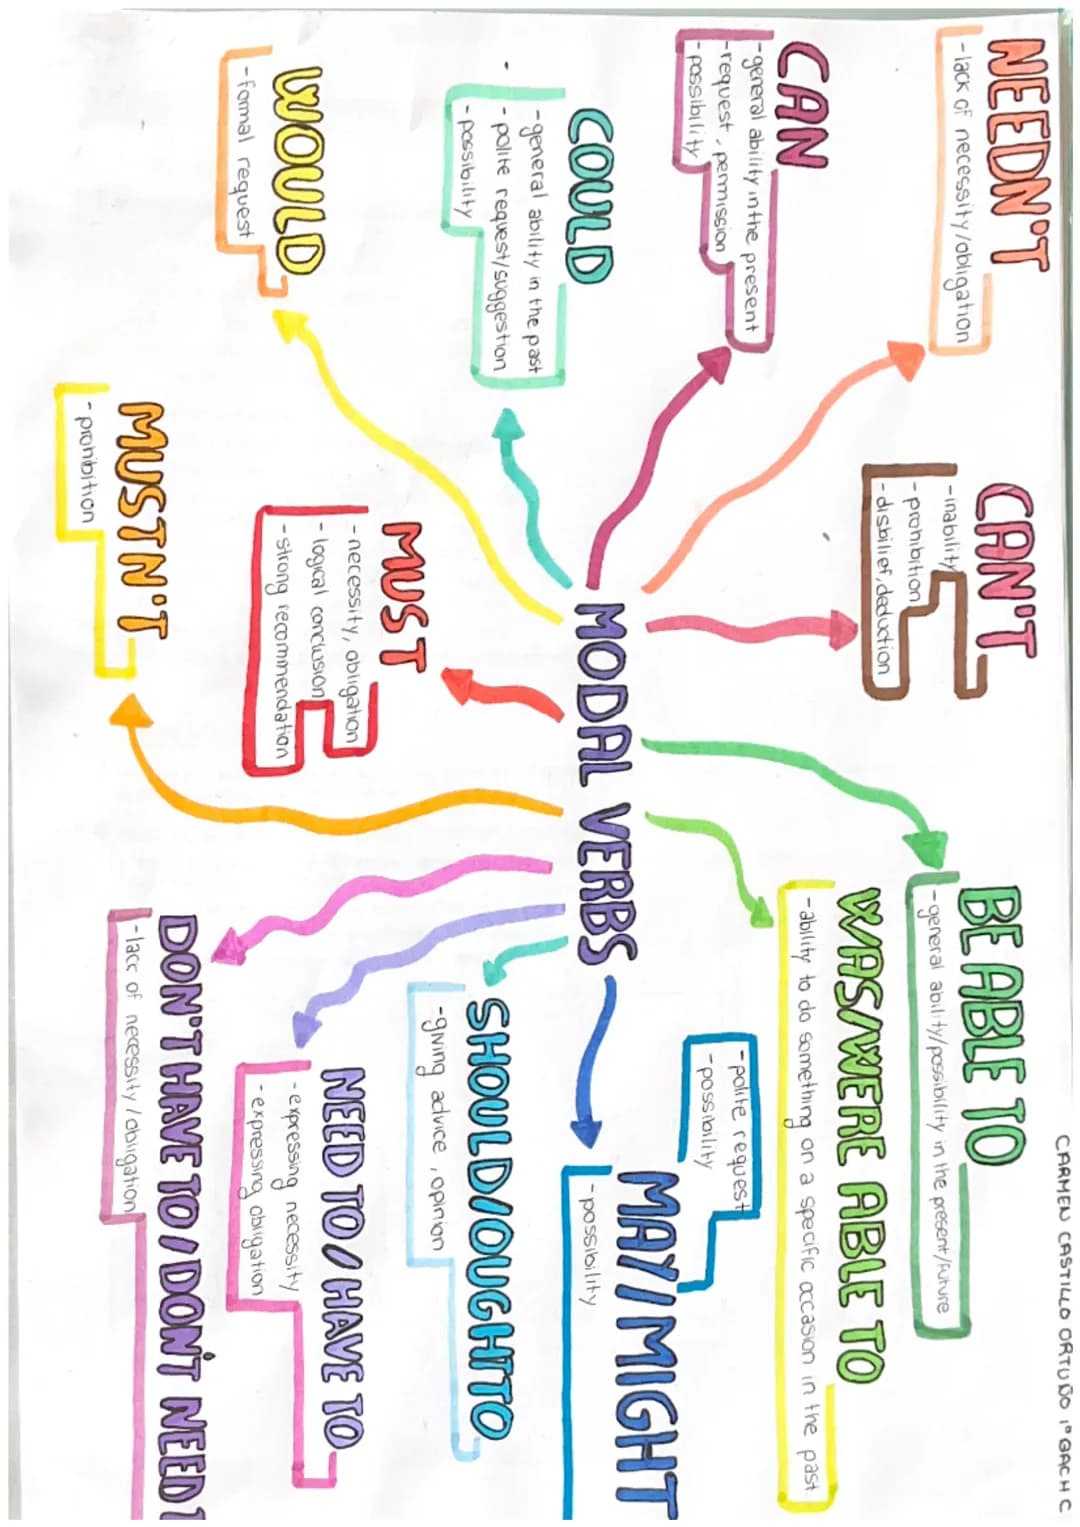 CARMEN CASTILLO ORTUÑO 1º BACH C
NEEDN'T
-lack of necessity/obligation
CAN
-general ability in the present
-request, permission
-possibility
COULD
-general ability in the past
- polite request/suggestion
- possibility
WOULD
-formal request
CAN'T
-inability
-prohibition
-disbilief, deduction
MODAL VERBS
MUST
-necessity, obligation
- logical conclusion
-strong recommendation
MUSTN'T
- prohibition
BE ABLE TO
-general ability/possibility in the present/future
WAS/WERE ABLE TO
-ability to do something on a specific occasion in the past
-polite request
-possibility
MAY/MIGHT
-possibility
SHOULD/OUGHT TO
-giving advice, opinion
NEED TO/HAVE TO
-expressing necessity
-expressing obligation
DON'T HAVE TO/DON'T NEED T
-lack of necessity/obligation